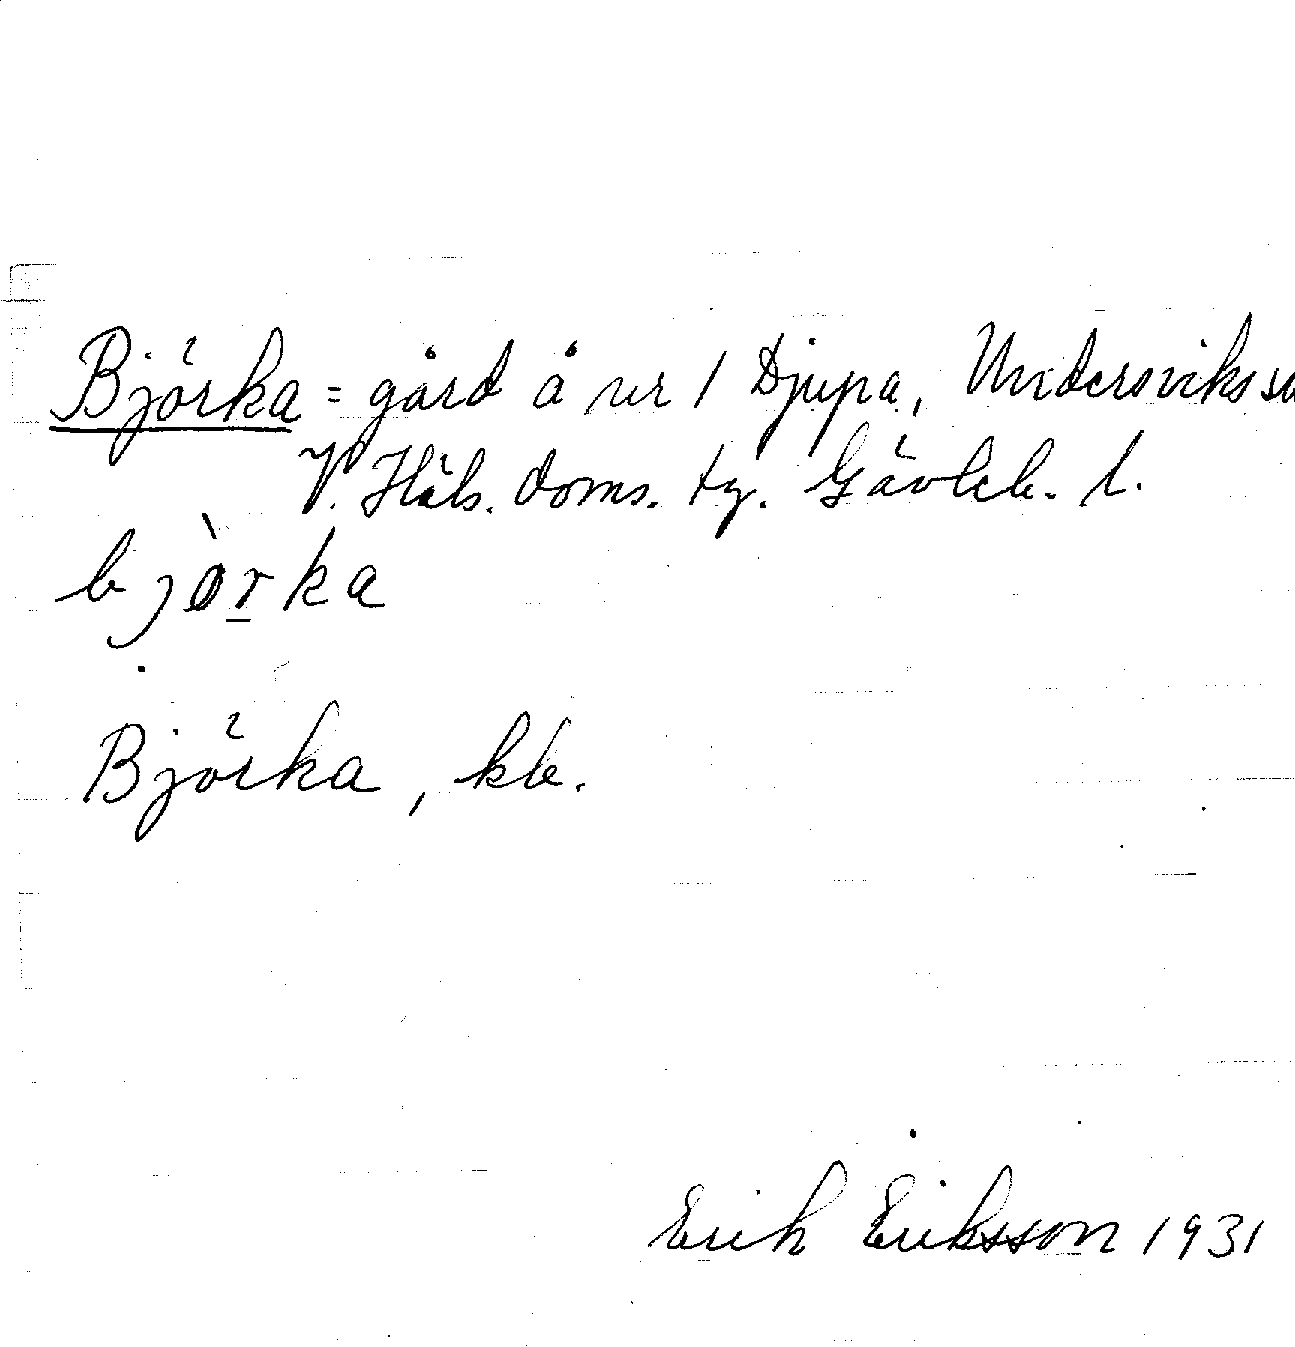 Björka = gård å nr 1 Djupa, Undersviks sn
V. Häls. doms. tg. Gävleb. l.
bjòrka
Björka, kb.
Erik Eriksson 1931